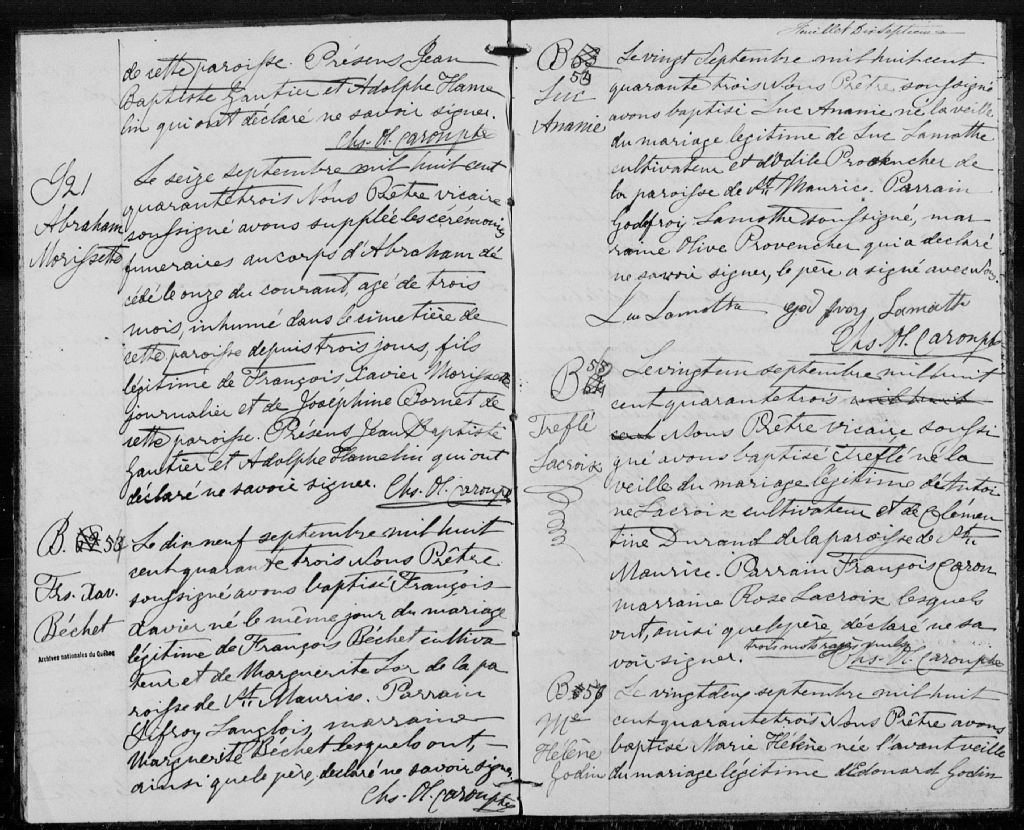 de cette paroisse. Présens Jean
Baptiste Gautier et Adolphe Hame
lin qui ont déclaré ne savoir signer.
Chs. Ol. Caron ptre
S21
Abraham
Morissette
Le seize septembre mil huit cent
quarante trois Nous Prêtre vicaire
soussigné avons supplée les ceremonies
funeraires au corps d'Abraham dé
cédé le onze du courant, agé de trois
mois, inhumé dans le cimetière de
cette paroisse depuis trois jours, fils
légitime de François Xavier Morissette
journalier et de Josephine Cornet de
cette paroisse. Présens Jean Baptiste
Gautier et Adolphe Hamelin qui ont
déclaré ne savoir signer. Chs. Ol. Caron ptre
B. 53
Frs. Xav.
Béchet
Archives nationales du Québec
Le dix neuf septembre mil huit
cent quarante trois Nous Prêtre
soussigné avons baptisé François
Xavier né le même jour du mariage
légitime de François Béchet cultiva
teur et de Marguerite Lor de la pa
roisse de St. Maurice. Parrain
Langlois, marraine
Marguerite Béchet lesquels ont,
ainsi que le père, déclaré ne savoir signer
Chs. Ol. Caron ptre
Feuillet Dix septième
B 54
Luc
Ananie
Le vingt Septembre mil huit cent
quarante trois Nous Prêtre soussigné
avons baptisé Luc Ananie né la veille
du mariage légitime de Luc Lamothe
cultivateur et d'Odile Provencher de
la paroisse de St. Maurice. Parrain
Godefroy Lamothe soussigné, mar
raine Olive Provencher qui a déclaré
ne savoir signer, le père a signé avec Nous.
Luc Lamothe Lamothe
Chs. Ol. Caron ptre
B 55
Treflé
Lacroix
Le vingt un septembre mil huit
cent quarante trois mil huit
cent Nous Prêtre vicaire soussi
gné avons baptisé Treflé né la
veille du mariage légitime d'Antoi
ne Lacroix cultivateur et de Clemen
tine Durand de la paroisse de St.
Maurice. Parrain François Caron
marraine Rose Lacroix lesquels
ont, ainsi que le père déclaré ne sa
voir signer. trois mots rayés nuls
Chs. Ol. Caron ptre
B 56
Me
Hélène
Godin
Le vingt deux septembre mil huit
cent quarante trois Nous Prêtre avons
baptisé Marie Hélène née l'avant veille
du mariage légitime d'Edouard Godin